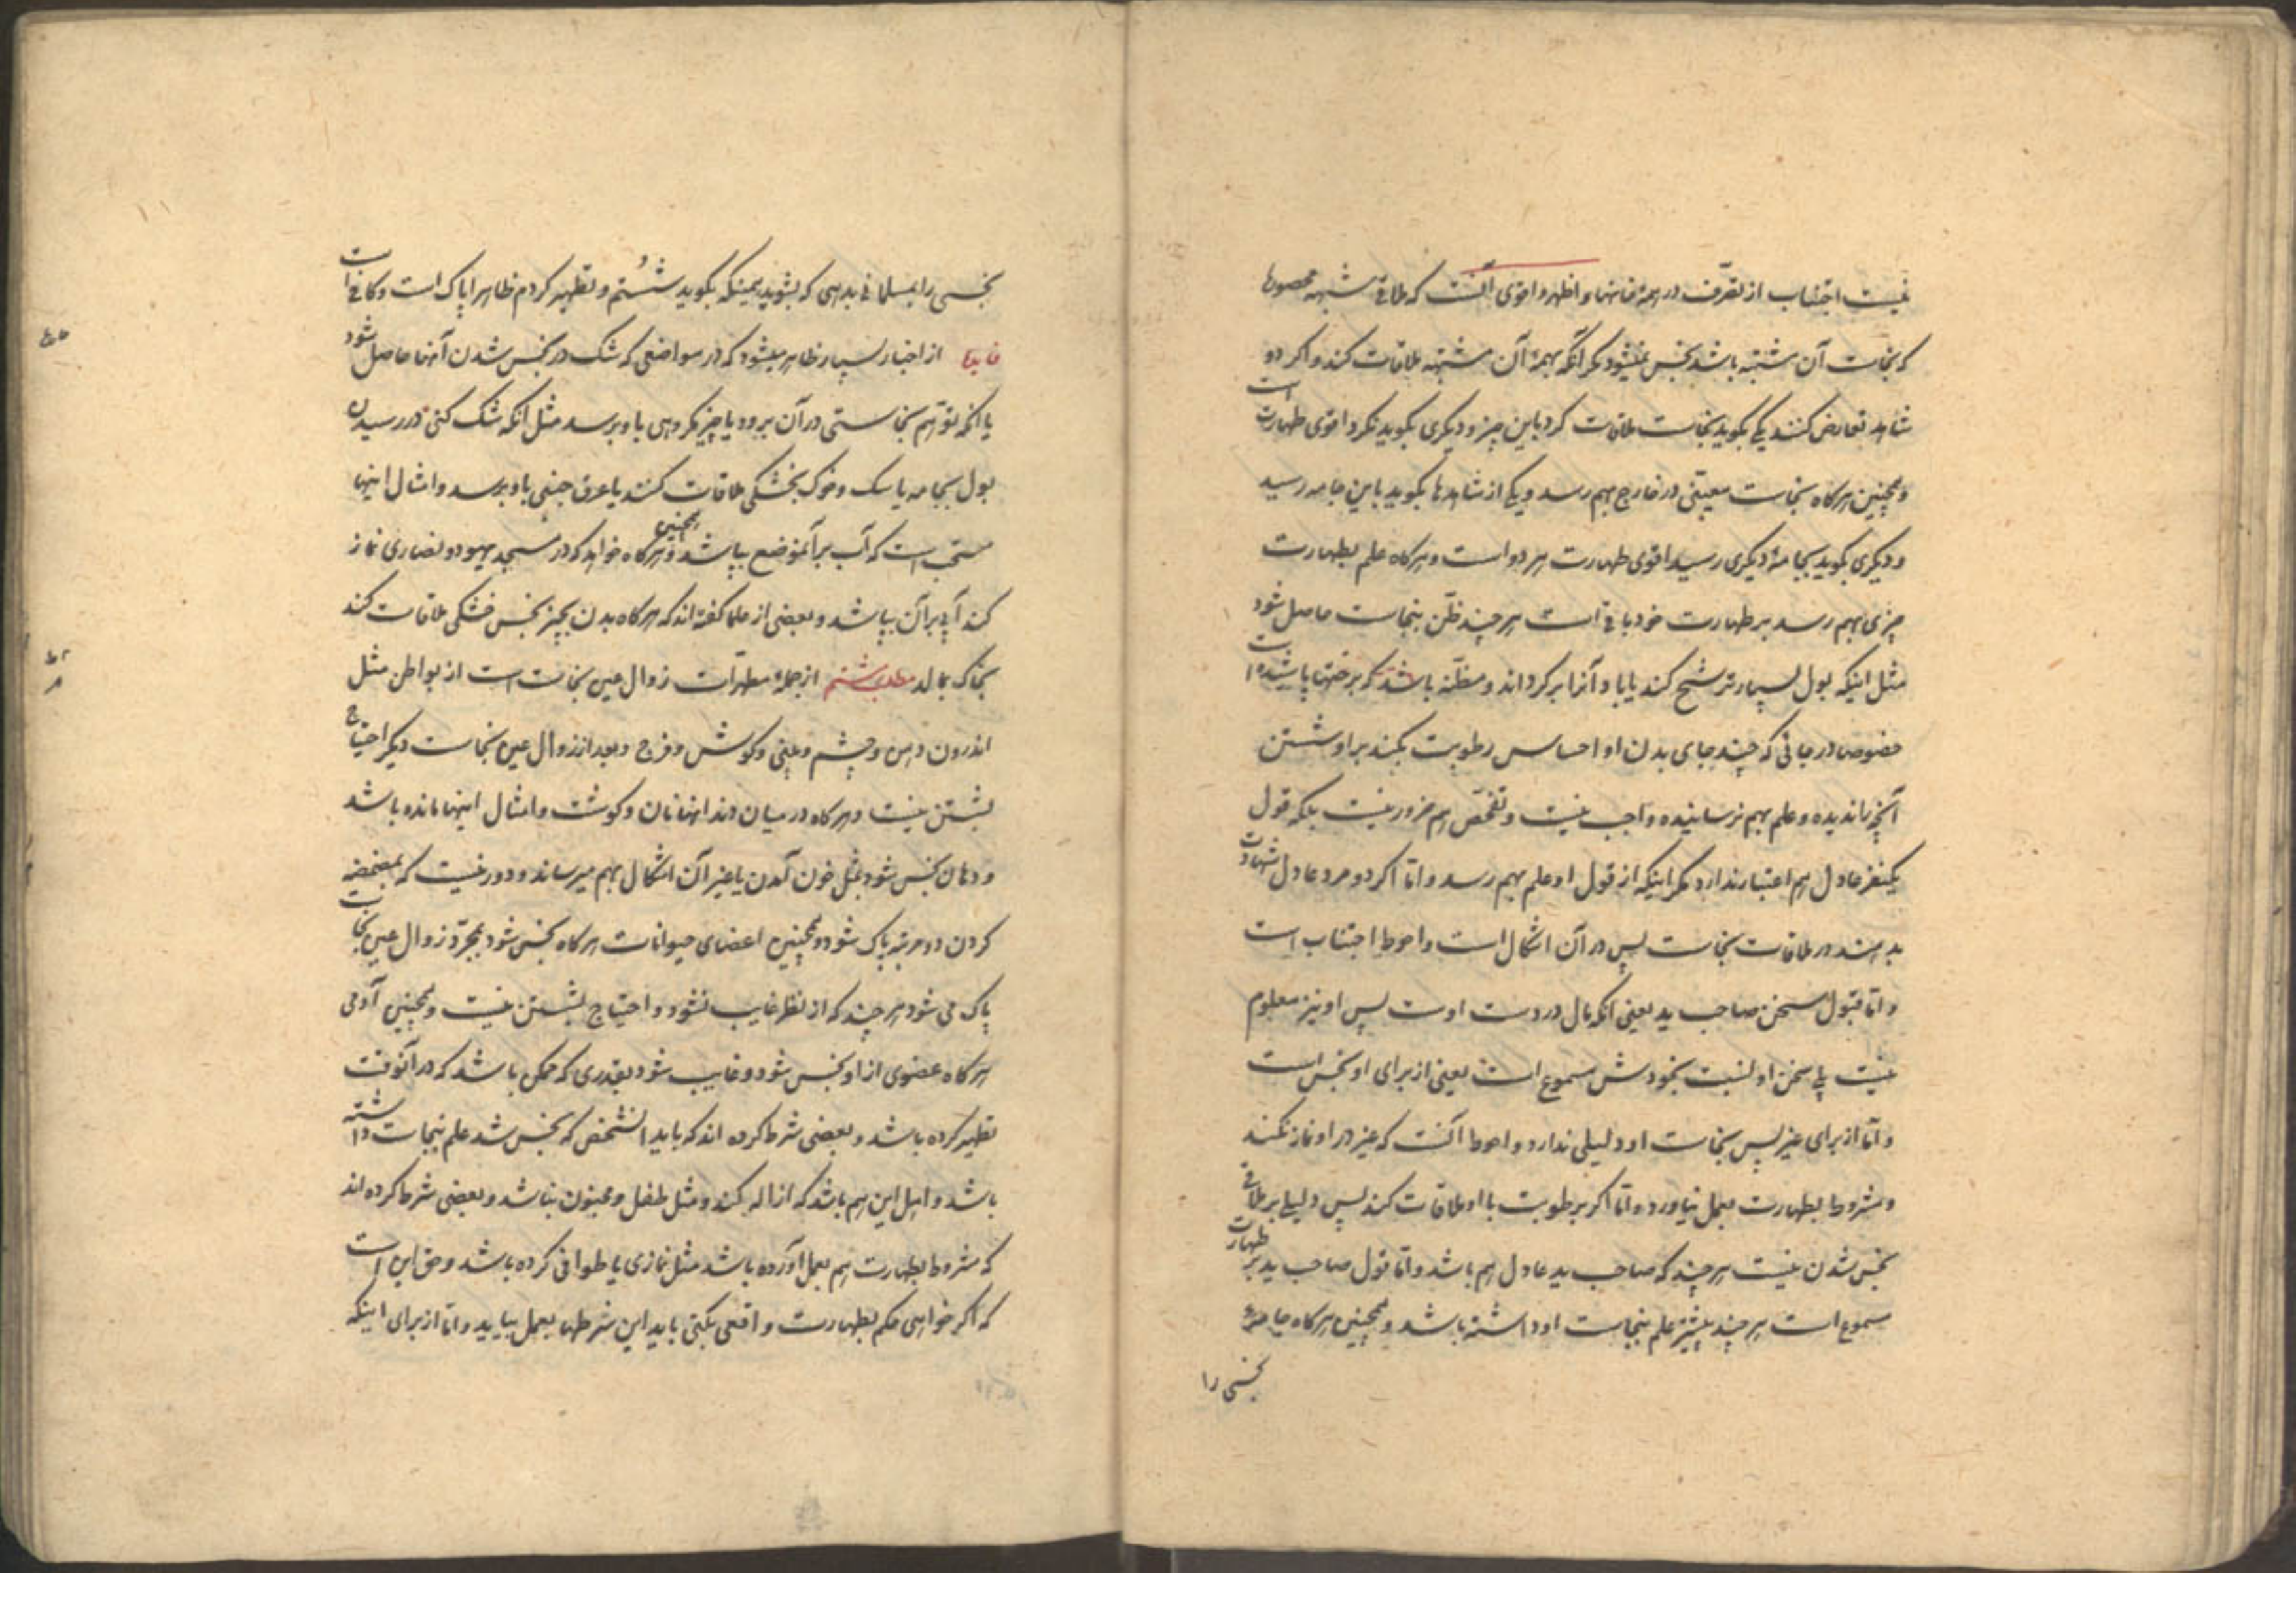 نیست اجتناب از تصرف در همهٔ خانها و اظهر و اقوی آنست که ملاقی شبهه محصورها
که نجاست آن مشتبه باشد نجس نمیشود مگر آنکه بهمهٔ آن مشتبه ملاقات کند و اگر دو
شاهد تعارض کنند یکی بگوید نجاست ملاقات کرد باین چیز و دیگری بگوید نکرد اقوی طهارت است
و همچنین هرگاه نجاست معینی در خارج بهم رسد و یکی از شاهدها بگوید باین جامه رسید
و دیگری بگوید بجامهٔ دیگری رسید اقوی طهارت هر دو است و هرگاه علم بطهارت
چیزی بهم رسد بر طهارت خود باقی است هر چند ظنّ بنجاست حاصل شود
مثل اینکه بول بسیار ترشح کند یا باد آنرا برگرداند و مظنّه باشد که برختها پاشیده است
خصوصا در جائی که چند جای بدن او احساس رطوبت بکند بر او شستن
آنچه را ندیده و علم بهم نرسانیده واجب نیست و تفحّص هم ضرور نیست بلکه قول
یکنفر عادل هم اعتبار ندارد مگر اینکه از قول او علم بهم رسد و امّا اگر دو مرد عادل شهادت
بدهند در ملاقات نجاست پس در آن اشکال است و احوط اجتناب است
و امّا قبول سخن صاحب ید یعنی آنکه مال در دست اوست پس او نیز معلوم
نیست بلی سخن او نسبت بخودش مسموع است یعنی از برای او نجس است
و امّا از برای غیر پس نجاست او دلیلی ندارد و احوط آنست که غیر در او نماز نکند
و مشروط بطهارت بعمل نیاورد و امّا اگر برطوبت با او ملاقات کند پس دلیلی بر ملاقی
نجس شدن نیست هر چند که صاحب ید عادل هم باشد و امّا قول صاحب ید بر طهارت
مسموع است هر چند پیشتر علم بنجاست او داشته باشد و همچنین هرگاه جامهٔ
نجسی را
نجسی را بمسلمانی بدهی که بشوید همینکه بگوید شُستم و تطهیر کردم ظاهرا پاک است و کافی است
فایده از اخبار بسیار ظاهر میشود که در مواضعی که شک در نجس شدن آنها حاصل شود
یا آنکه توهّم نجاستی در آن برود یا چیز مکروهی باو برسد مثل آنکه شک کنی در رسیدن
بول بجامه یا سگ و خوک بخشکی ملاقات کنند یا عرق جنبی باو برسد و امثال اینها
مستحب است که آب بر آنموضع بپاشد و همچنین هرگاه خواهد که در مسجد یهود و نصاری نماز
کند آبی بر آن بپاشد و بعضی از علما گفته اند که هرگاه بدن بچیز نجس خشکی ملاقات کند
بخاک بمالد مطلب ششم از جملهٔ مطهّرات زوال عین نجاست است از بواطن مثل
اندرون دهن و چشم و بینی و گوش و فرج و بعد از زوال عین نجاست دیگر احتیاج
بشستن نیست و هرگاه در میان دندانها نان و گوشت و امثال اینها مانده باشد
و دهان نجس شود بمثل خون آمدن یا غیر آن اشکال بهم میرساند و دور نیست که بمضمضه
کردن دو مرتبه پاک شود و همچنین اعضای حیوانات هرگاه نجس شود بمجرّد زوال عین نجاست
پاک می شود هر چند که از نظر غایب نشود و احتیاج بشستن نیست و همچنین آدمی
هرگاه عضوی از او نجس شود و غایب شود بقدری که ممکن باشد که در آنوقت
تطهیر کرده باشد و بعضی شرط کرده اند که باید آنشخص که نجس شد علم بنجاست داشته
باشد و اهل این هم باشد که ازاله کند و مثل طفل و مجنون نباشد و بعضی شرط کرده اند
که مشروط بطهارت هم بعمل آورده باشد مثل نمازی یا طوافی کرده باشد و حق این است
که اگر خواهی حکم بطهارت واقعی بکنی باید این شرطها بعمل بیاید و امّا از برای اینکه